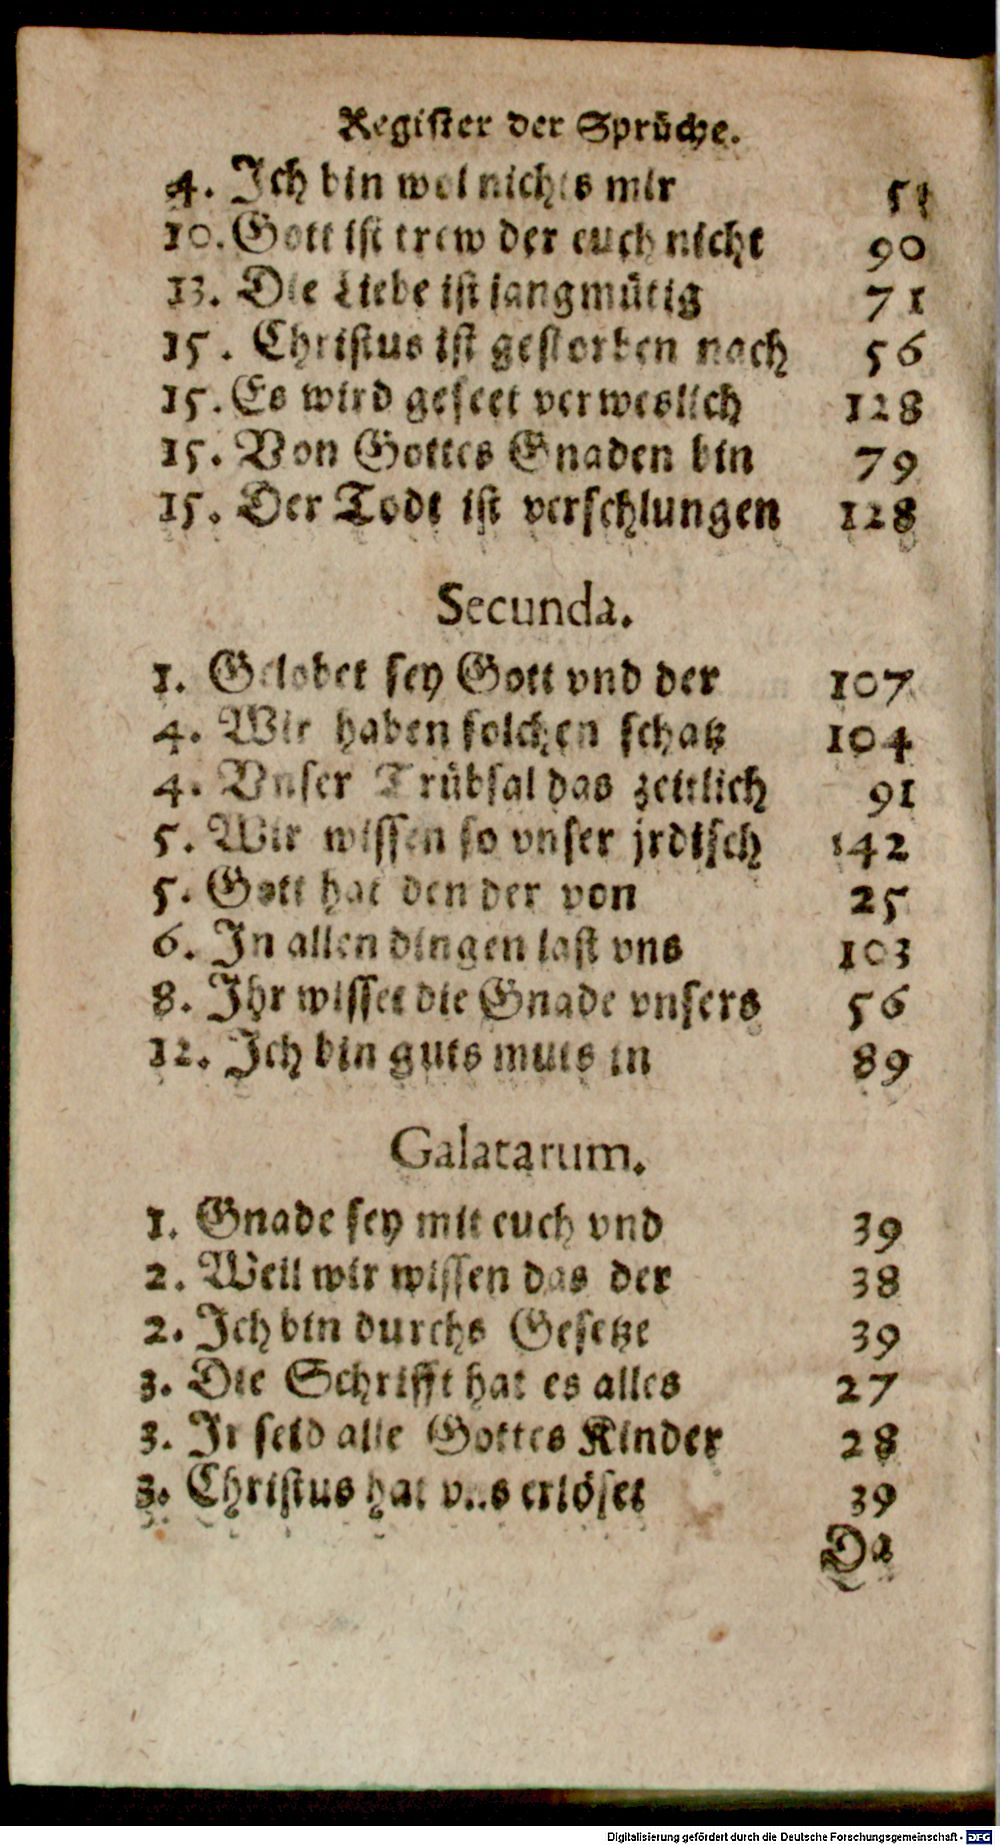 Register der Sprüche.
4. Ich bin wol nichts mir 51
10. Gott ist trew der euch nicht 90
13. Die Liebe ist langmütig 71
15. Christus ist gestorben nach 56
15. Es wird geseet verweslich 128
15. Von Gottes Gnaden bin 79
15. Der Todt ist verschlungen 128
Secunda.
1. Gelobet sey Gott vnd der 107
4. Wir haben solchen schatz 104
4. Vnser Trübsal das zeitlich 91
5. Wir wissen so vnser jrdisch 142
5. Gott hat den der von 25
6. In allen dingen last vns 103
8. Ihr wisset die Gnade vnsers 56
12. Ich bin guts muts in 89
Galatarum.
1. Gnade sey mit euch vnd 39
2. Weil wir wissen das der 38
2. Ich bin durchs Gesetze 39
3. Die Schrifft hat es alles 27
3. Ir seid alle Gottes Kinder 28
3. Christus hat vns erlöset 39
Da
Digitalisierung gefördert durch die Deutsche Forschungsgemeinschaft - DFG